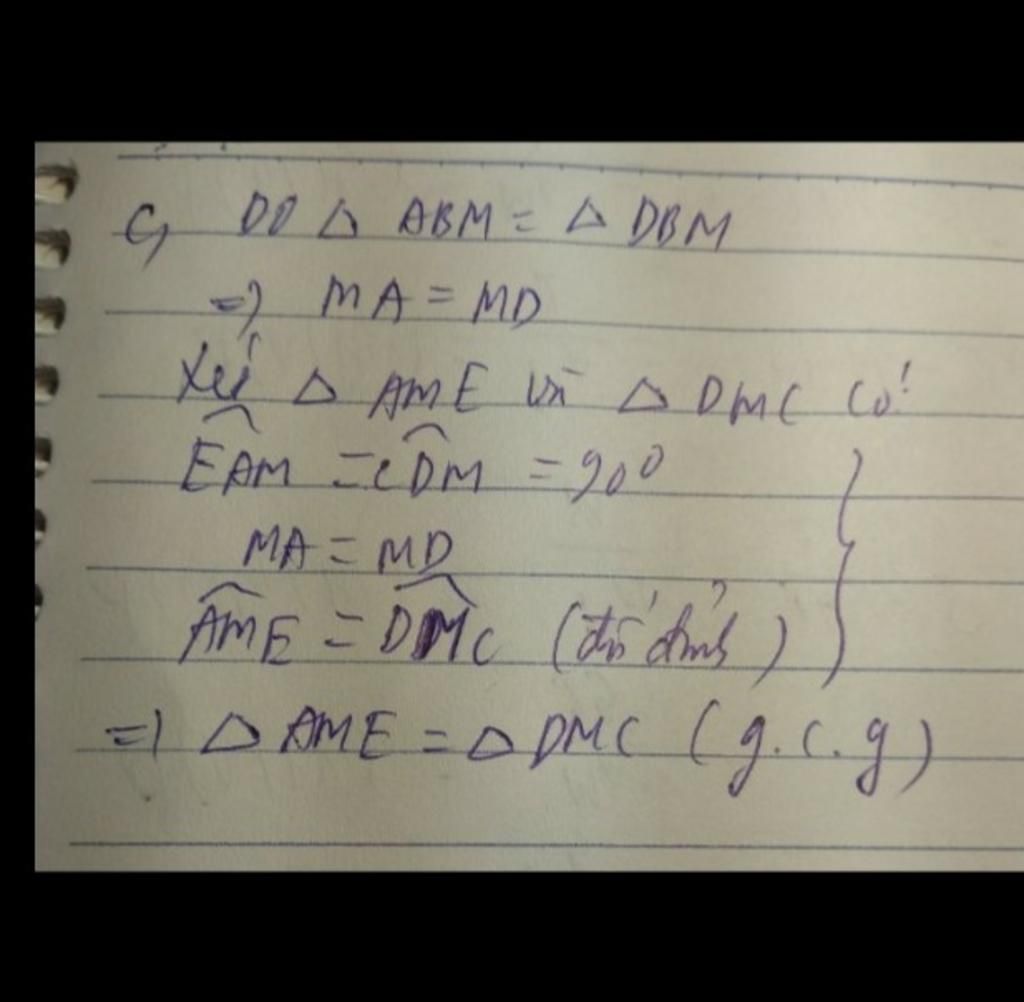 c, Do △ ABM = △ DBM
=> MA = MD
Xét △ AME và △ DMC có:
EAM = CDM = 90°
MA = MD
AME = DMC (đối đỉnh)
=> △ AME = △ DMC (g.c.g)